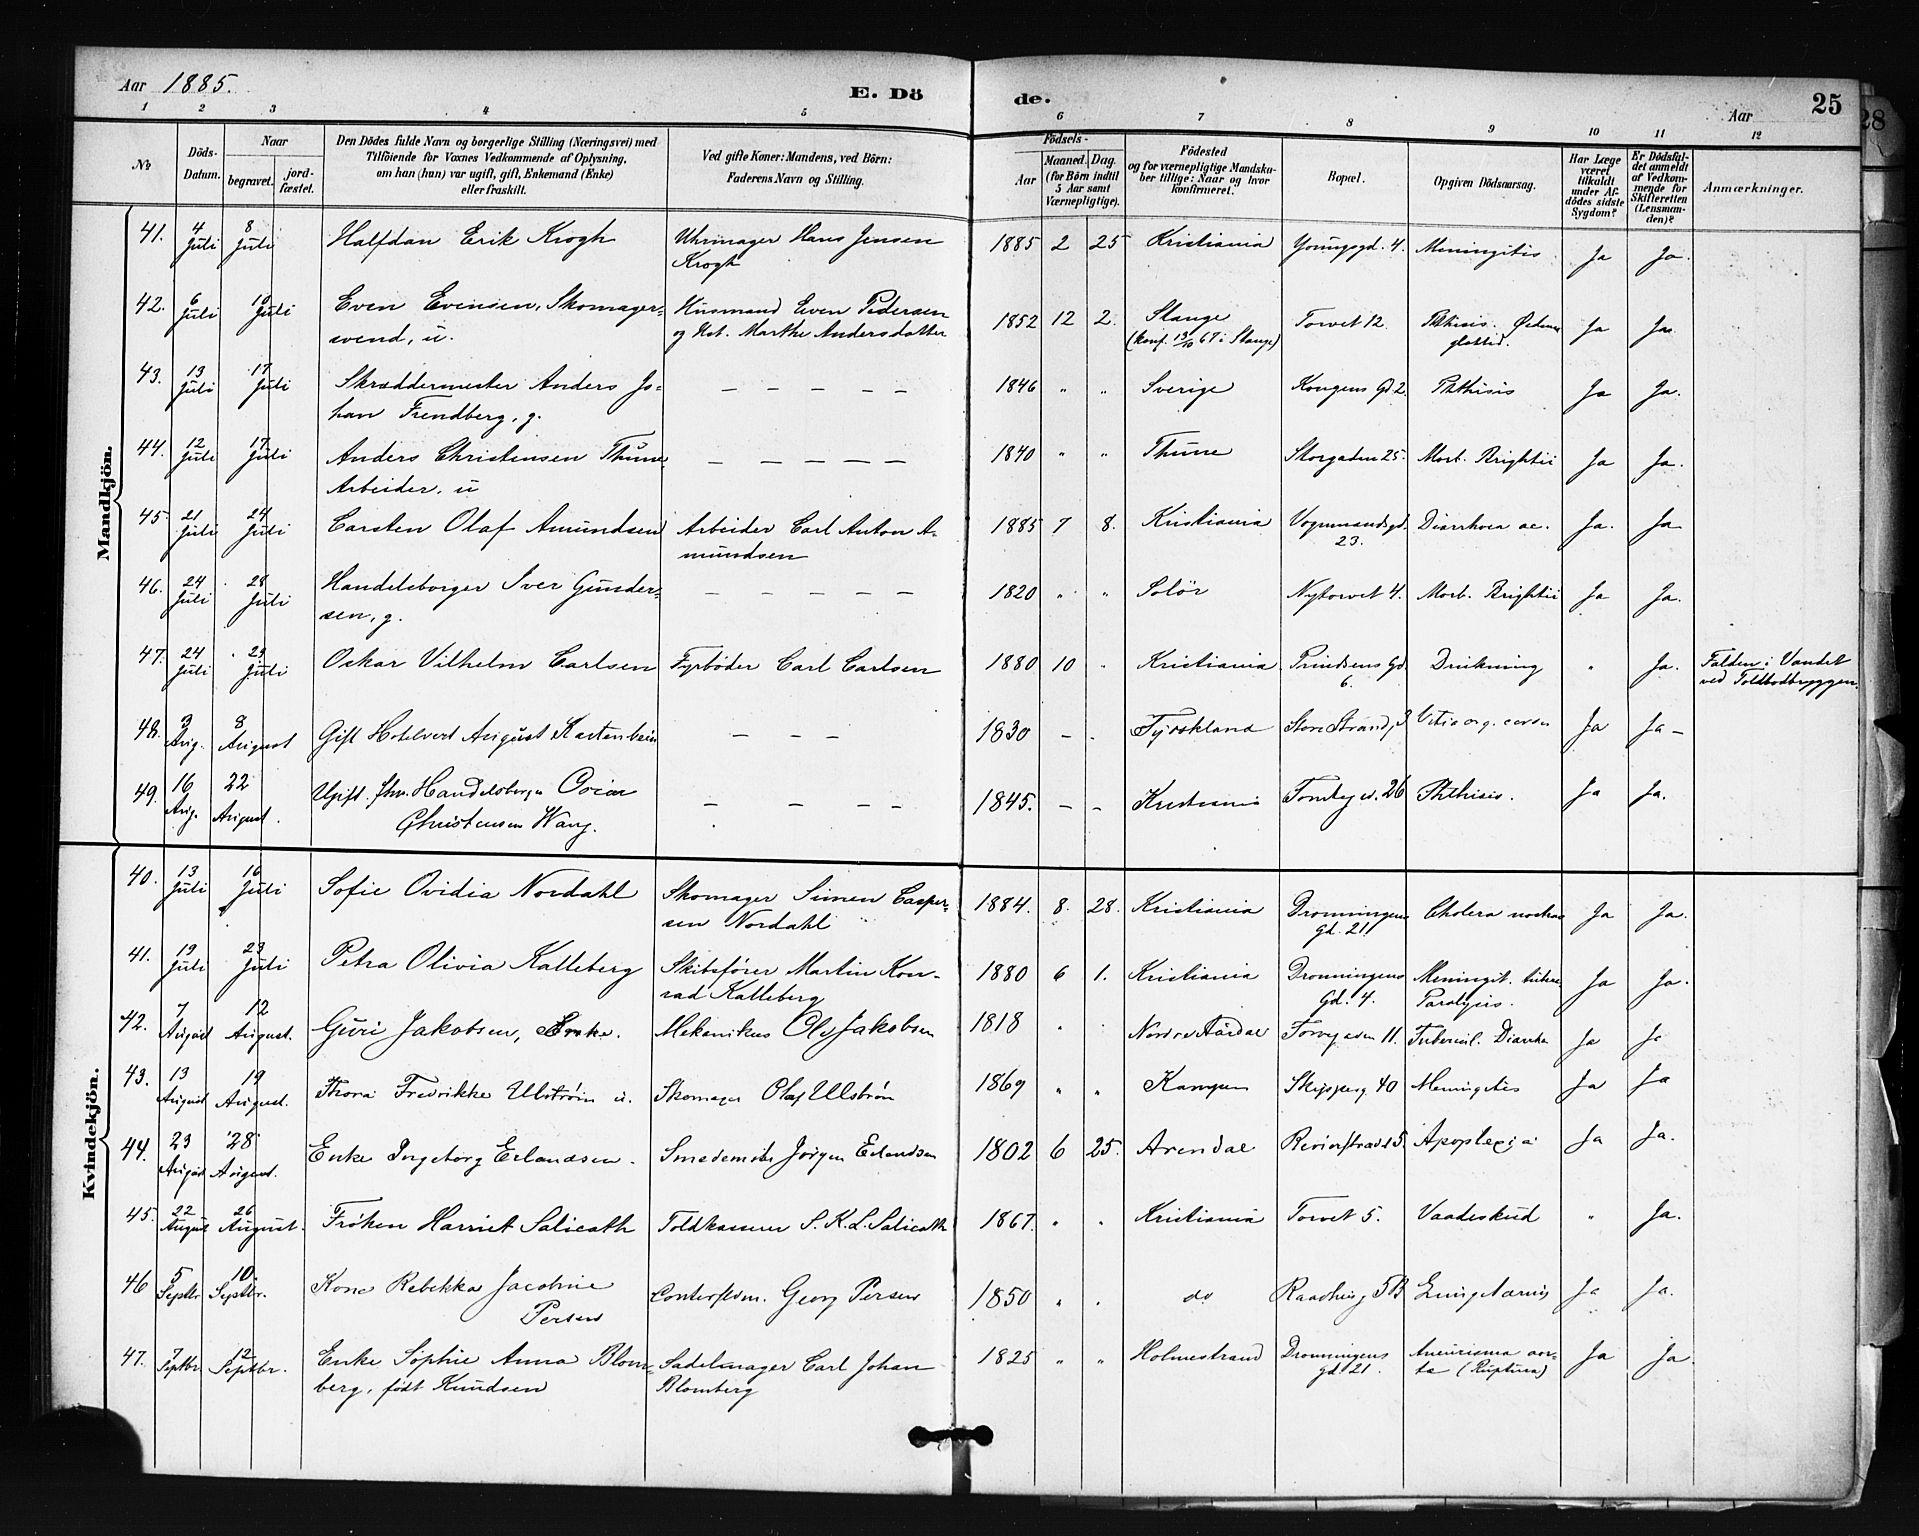 Aar 1885. E. Dö de. Aar 25
28
1 2 3 4 5 6 7 8 9 10 11 12
No
Döds-Datum.
Naar
begravet. jord-fæstet.
Den Dödes fulde Navn og borgerlige Stilling (Næringsvei) med
Tilföiende for Voxnes Vedkommende af Oplysning,
om han (hun) var ugift, gift, Enkemand (Enke)
eller fraskilt.
Ved gifte Koner: Mandens, ved Börn:
Faderens Navn og Stilling.
Födsels-
Aar Maaned. Dag.
(for Börn indtil
5 Aar samt
Værnepligtige).
Födested
og for værnepligtige Mandska-
ber tillige: Naar og hvor
konfirmeret.
Bopæl.
Opgiven Dödsaarsag.
Har Læge
været
tilkaldt
under Af-
dödes sidste
Sygdom?
Er Dödsfal-
det anmeldt
af Vedkom-
mende for
Skifteretten
(Lensman-
den)?
Anmærkninger.
Mandkjön.
41. 4 Juli 8 Juli Halfdan Erik Krogh Uhrmager Hans Jensen 1885 2 25 Kristiania Youngsgd. 4. Meningitis Ja Ja.
Krogh
42. 6 Juli 10 Juli Even Evensen, Skomager- Husmand Even Pedersen 1852 12 2. Stange Torvet 12. Phthisis. Ja Ja.
svend, u. og Hst. Marthe Andersdatter (konf. 13/10 67 i Stange)
43. 13 Juli 17 Juli Skræddermester Anders Jo- – – – – – 1846 " " Sverige Kongens Gd 2. Phthisis Ja Ja.
han Frendberg, g.
44. 12 Juli 17 Juli Anders Christensen Thune – – – – – 1840 " " Thune Storgaden 25. Morb. Brightii Ja Ja.
Arbeider, u
45. 21 Juli 24 Juli Carsten Olaf Amundsen Arbeider Carl Anton A- 1885 7 8. Kristiania Vognmandsgd. Diarrhoea ac. Ja. Ja
mundsen 23.
46. 24 Juli 28 Juli Handelsborger Iver Gunder- – – – – – 1820 " " Solör Nytorvet 4. Morb. Brightii Ja Ja.
sen, g.
47. 24 Juli 29 Juli Oskar Vilhelm Carlsen Fyrbøder Carl Carlsen 1880 10 " Kristiania Prindsens Gd Drukning " Ja. Falden i Vandet
6. ved Toldbodbryggen.
48. 3 Aug. 8 August Gift Hotelvert August Kastenbein – – – 1830 – – Tydskland Store Strandg 3 Vitia org. cordis Ja Ja –
49. 16 Aug. 22 August. Ugift. fhv. Handelsborger – – – – 1845. – – Kristiania 26 Phthisis. Ja Ja.
Christensen Wang.
Kvindekjön.
40. 13 Juli 16 Juli Sofie Ovidia Nordahl Skomager Simen Casper- 1884. 8. 28. Kristiania Dronningens Cholera nostras Ja Ja.
sen Nordahl Gd. 21
41. 19 Juli 23 Juli Petra Olivia Kalleberg Skibsfører Martin Kon- 1880 6 1. Kristiania Dronningens Meningit. Ja Ja.
rad Kalleberg Gd. 4. Paralysis.
42. 7 August 12 August. Guri Jakobsen, Enke. Mekanikus Ole Jakobsen 1818 " " Nordre Aurdal Torvgaden 11. Tubercul. Diarrhe Ja Ja
43. 13 August 19 August. Thora Fredrikke Ulstrøm u. Skomager Olaf Ulstrøm 1869 " " Kampen Skipperg. 40 Meningitis Ja Ja
44. 23 August 28 August. Enke Ingeborg Erlandsen. Smedemstr Jørgen Erlandsen 1802 6 25. Arendal Revierstræde 5. Apoplexia Ja Ja.
45. 22 August 26 August. Frøken Harriet Salicath Toldkasserer S. K. L. Salicath 1867. " " Kristiania Torvet 5. Vaadeskud " Ja.
46 5 Septbr. 10. Septbr. Kone Rebekka Jacobine Georg Persen 1850 " " do 5B Ja Ja.
Persen
47. 7 Septbr. 12 Septbr. Enke Sophie Anna Blom- Sadelmager Carl Johan 1825 " " Holmestrand Dronningens Aneurisma aor- Ja Ja
berg, født Knudsen Blomberg gd. 21. ta (Ruptura)